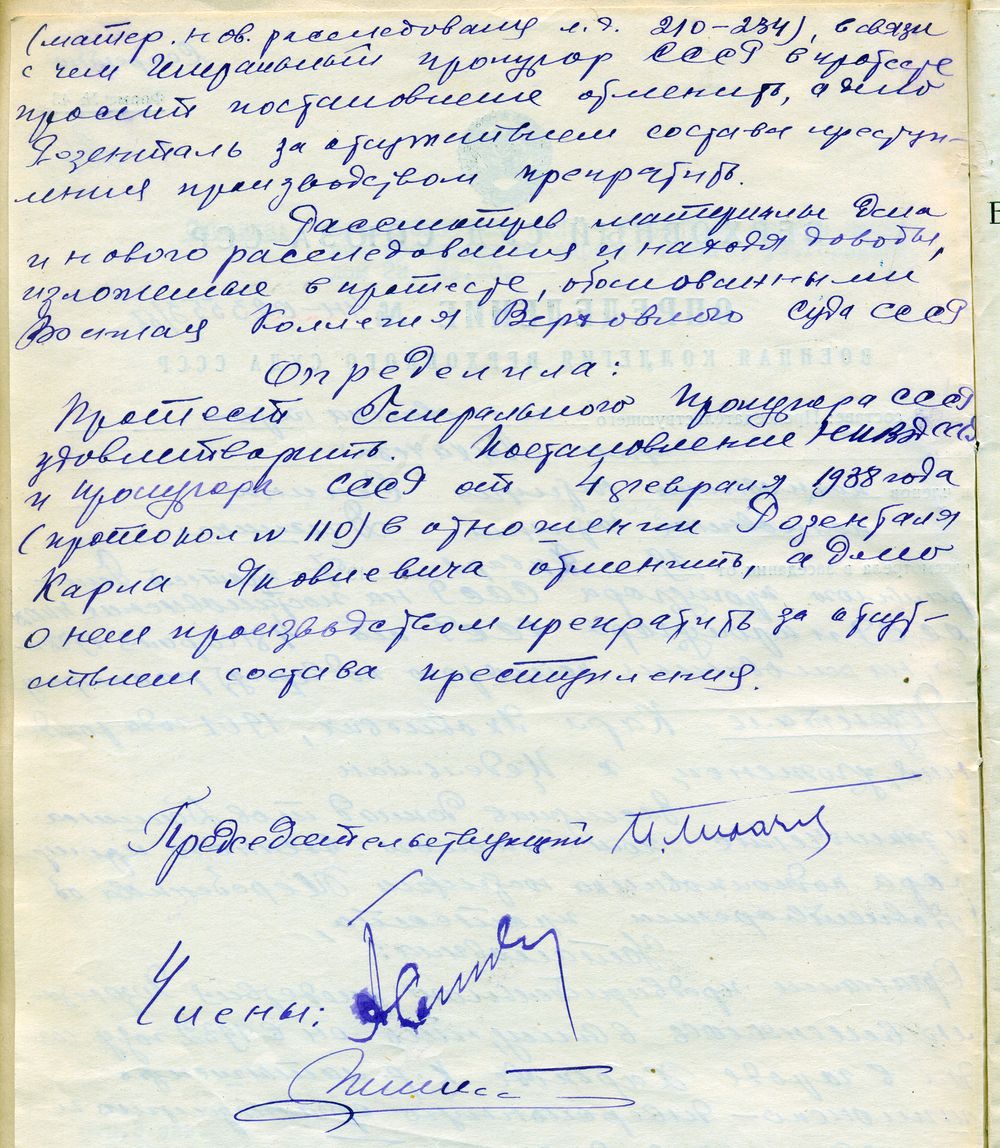 (матер. нов. расследования л.д. 210-234), в связи
с чем Генеральный прокурор СССР в протесте
просит постановление отменить, а дело
Розенталь за отсутствием состава преступ-
ления производством прекратить.
Рассмотрев материалы дела
и нового расследования и находя доводы,
изложенные в протесте, обоснованными
Военная Коллегия Верховного Суда СССР
Определила:
Протест Генерального Прокурора СССР
удовлетворить. Постановление НКВД СССР
и Прокурора СССР от 4 февраля 1938 года
(протокол № 110) в отношении Розенталя
Карла Яковлевича отменить, а дело
о нем производством прекратить за отсут-
ствием состава преступления.
Председательствующий
Члены: